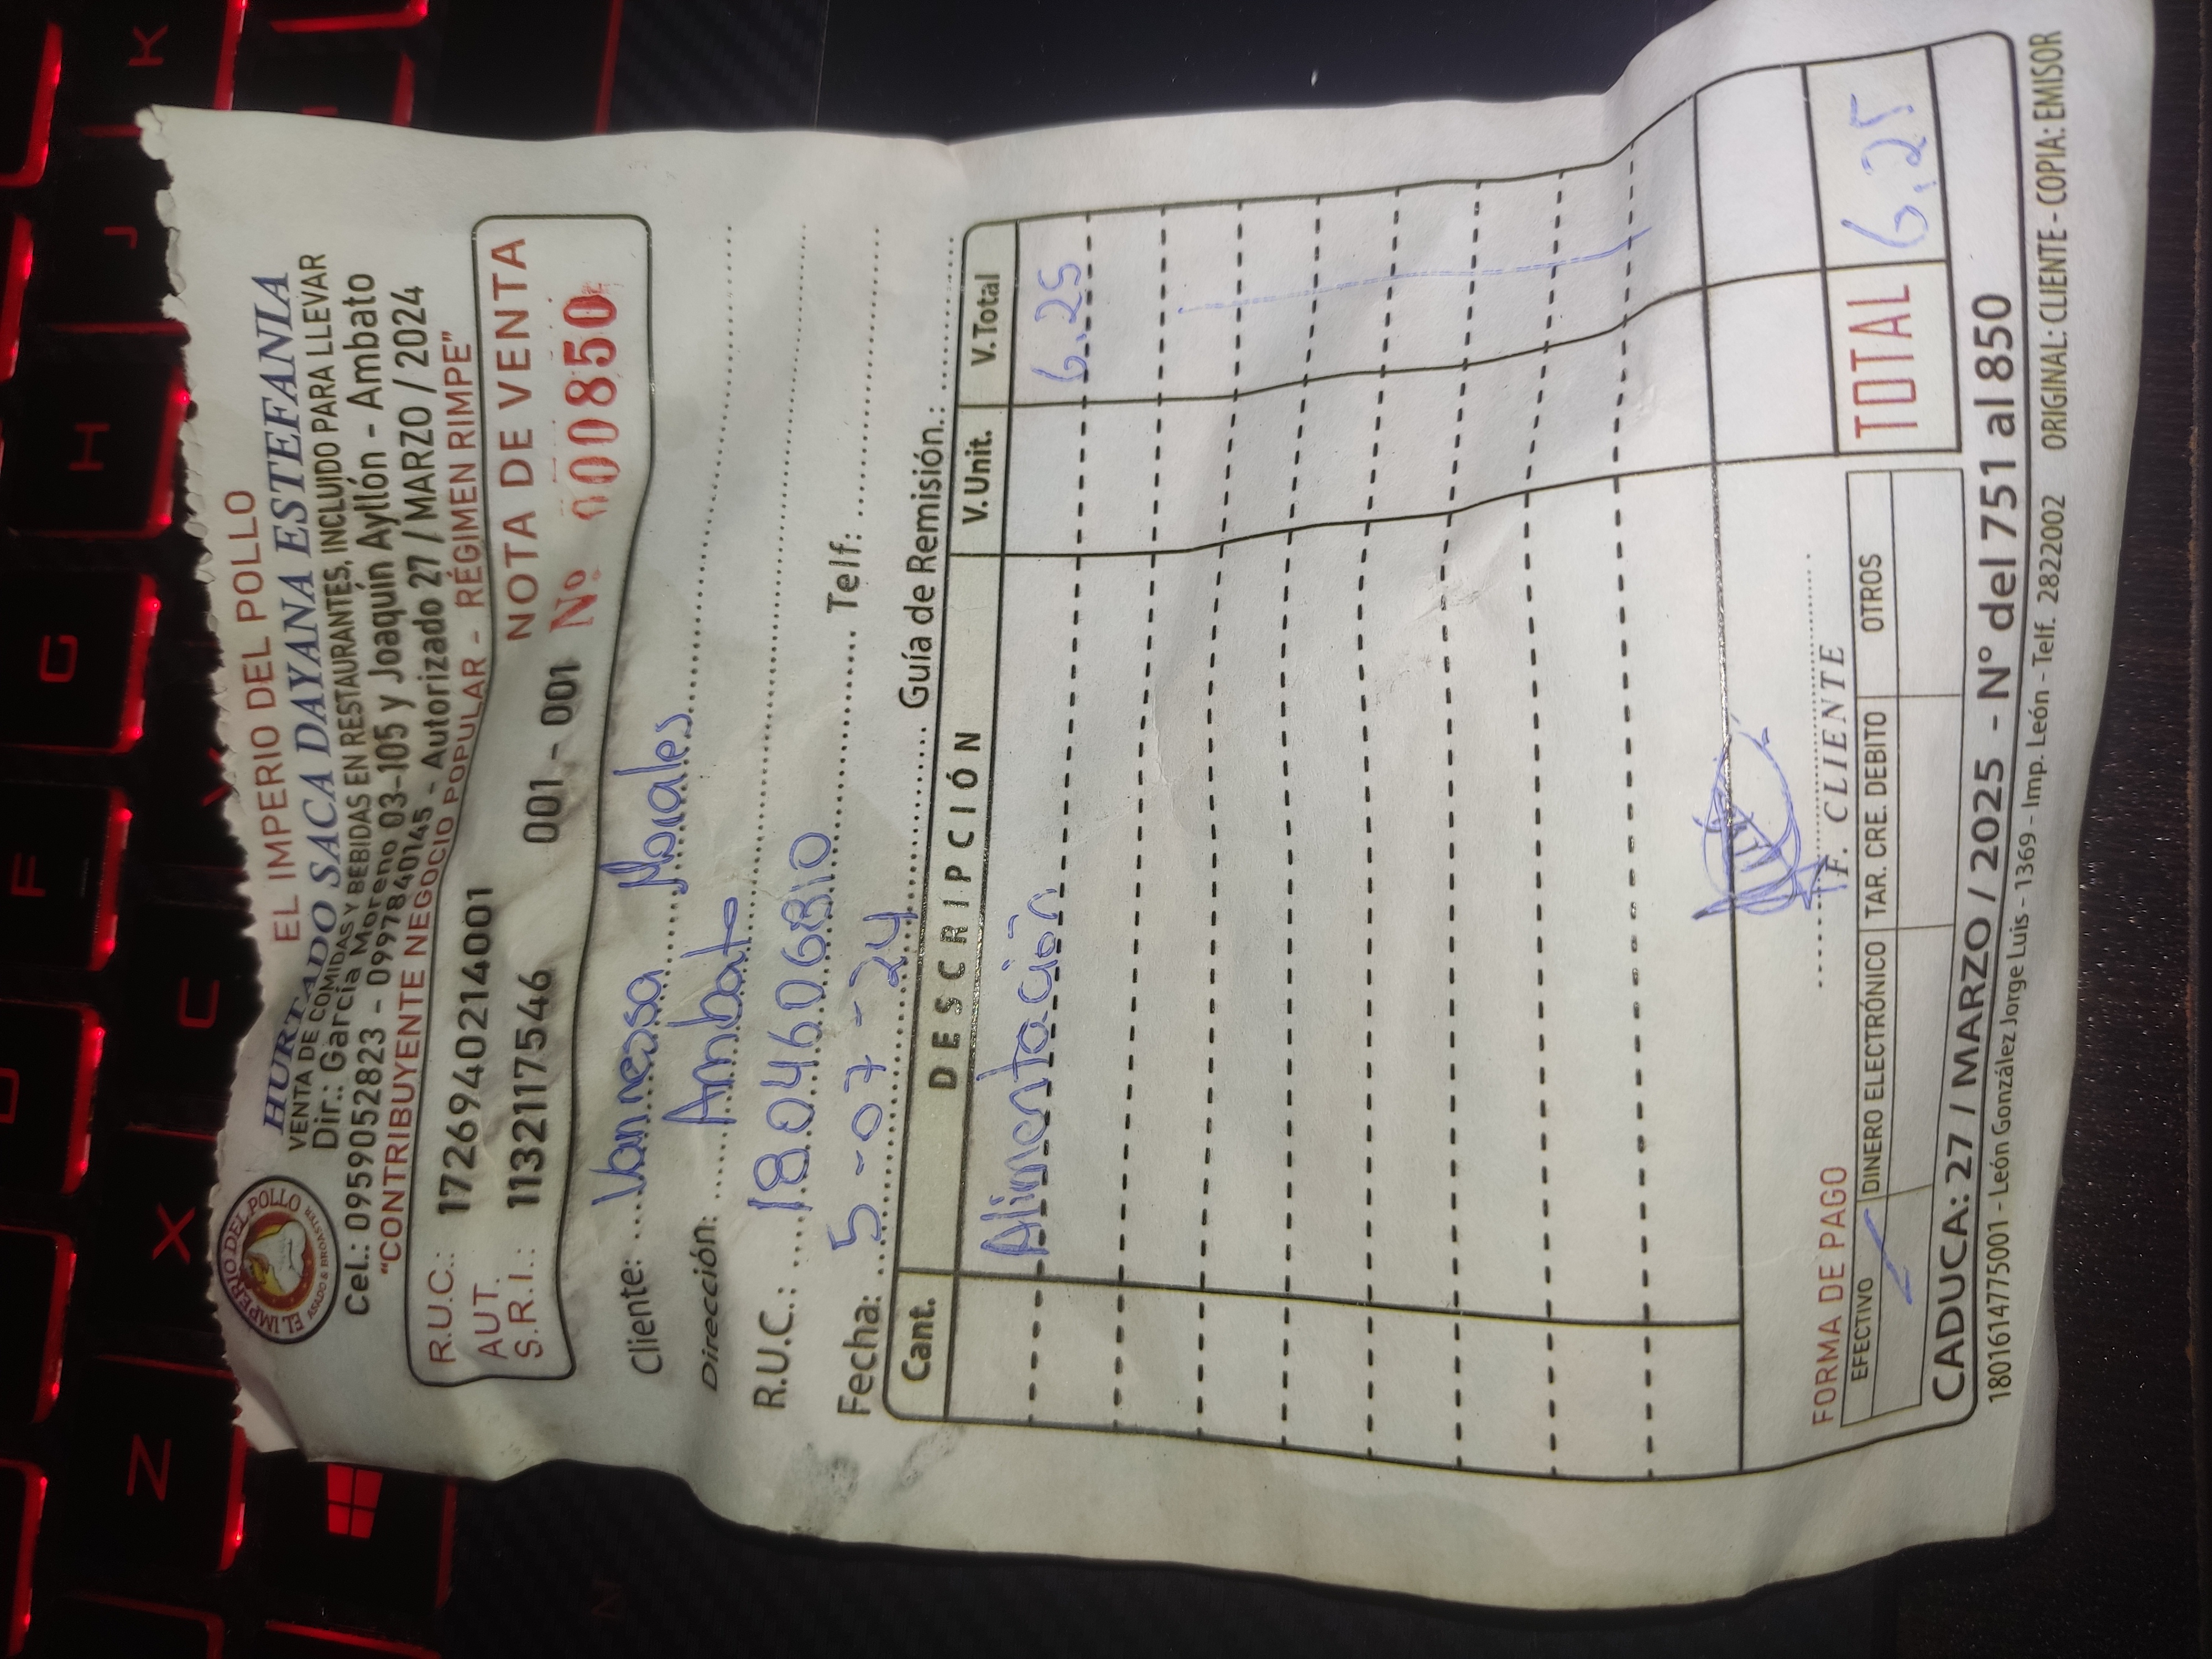 EL IMPERIO DEL POLLO
ASADO & BROASTER
EL IMPERIO DEL POLLO
HURTADO SACA DAYANA ESTEFANIA
VENTA DE COMIDAS Y BEBIDAS EN RESTAURANTES, INCLUIDO PARA LLEVAR
Dir.: García Moreno 03-105 y Joaquín Ayllón - Ambato
Cel.: 0959052823 - 0997840145 - Autorizado 27 / MARZO / 2024
"CONTRIBUYENTE NEGOCIO POPULAR - RÉGIMEN RIMPE"
R.U.C.: 1726940214001
NOTA DE VENTA
AUT. S.R.I.: 1132117546 001 - 001 Nº 000850
Cliente: Vannessa Morales
Dirección: Ambato
R.U.C.: 1804606810 Telf:
Fecha: 5-07-24 Guía de Remisión.:
Cant. DESCRIPCIÓN V.Unit. V.Total
Alimentación 6.25
F. CLIENTE
FORMA DE PAGO
EFECTIVO DINERO ELECTRÓNICO TAR. CRE. DEBITO OTROS
TOTAL 6.25
CADUCA: 27 / MARZO / 2025 - N° del 751 al 850
1801614775001 - León González Jorge Luis - 1369 - Imp. León - Telf. 2822002 ORIGINAL: CLIENTE - COPIA: EMISOR
Z X C D F G H J K